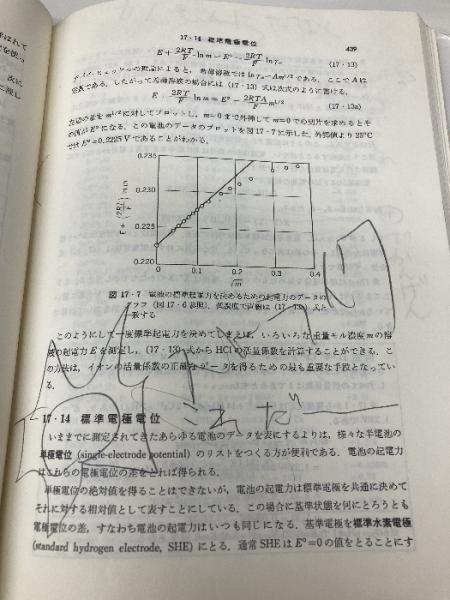 17・14 標準電極電位
439
E + 2RT/F ln m = E° − 2RT/F ln γ±
(17・13)
デバイ-ヒュッケルの理論によると，希薄溶液では ln γ± = Am^1/2 である．ここで A は
定数である．したがって希薄溶液の場合には (17・13) 式は次式のように書ける．
E + 2RT/F ln m = E° − 2RTA/F m^1/2
(17・13a)
左辺の量を m^1/2 に対してプロットし，m=0 まで外挿して m=0 での切片を求めるとそ
の値が E° になる．この電池のデータのプロットを図 17・7 に示した．外挿値より 25°C
では E°=0.2225 V であることがわかる．
0.235
0.230
0.225
0.220
E + (2RT/F) ln m
0
0.1
0.2
0.3
0.4
√m
図 17・7 電池の標準起電力を決めるための起電力のデータの
グラフ (図 17・6 参照)．低濃度で直線は (17・13a) 式と
一致する
このようにして一度標準起電力を決めてしまえば，いろいろな重量モル濃度 m の溶
液の起電力 E を測定し，(17・13) 式から HCl の活量係数を計算することができる．こ
の方法は，イオンの活量係数の正確なデータを得るための最も重要な手段となってい
る．
17・14 標準電極電位
いままでに測定されてきたあらゆる電池のデータを表にするよりは，様々な半電池の
単極電位 (single-electrode potential) のリストをつくる方が便利である．電池の起電力
はこれらの電極電位の差をとれば得られる．
単極電位の絶対値を得ることはできないが，電池の起電力は標準電極を共通に決めて
それに対する相対値として表すことにしている．この場合に基準状態を何にとろうとも
電極電位の差，すなわち電池の起電力はいつも同じになる．基準電極を標準水素電極
(standard hydrogen electrode, SHE) にとる．通常 SHE は E°=0 の値をとることにす